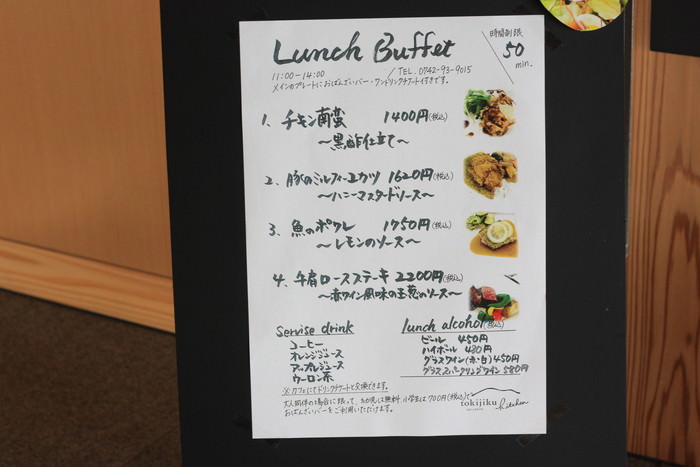 Lunch Buffet
時間制限
50
min.
11:00-14:00
TEL. 0742-93-9015
メインのプレートにおばんざいバー・ワンドリンクチケート付きです。
1. チキン南蛮 1400円(税込)
～黒酢仕立て～
2、豚のミルフィーユカツ 1620円(税込)
～ハニーマスタードソース～
3、魚のポワレ 1750円(税込)
～レモンのソース～
4、牛肩ロースステーキ 2200円(税込)
～赤ワイン風味の玉葱のソース～
Servise drink
コーヒー
オレンジジュース
アップルジュース
ウーロン茶
lunch alcohol(税込)
ビール 450円
ハイボール 480円
グラスワイン(赤・白)450円
グラススパークリングワイン 580円
※カフェにてドリンクチケートと交換できます。
大人同伴の場合に限って、幼児は無料、小学生は700円(税込)で
おばんざいバーをご利用いただけます。
tokijiku
kitchen